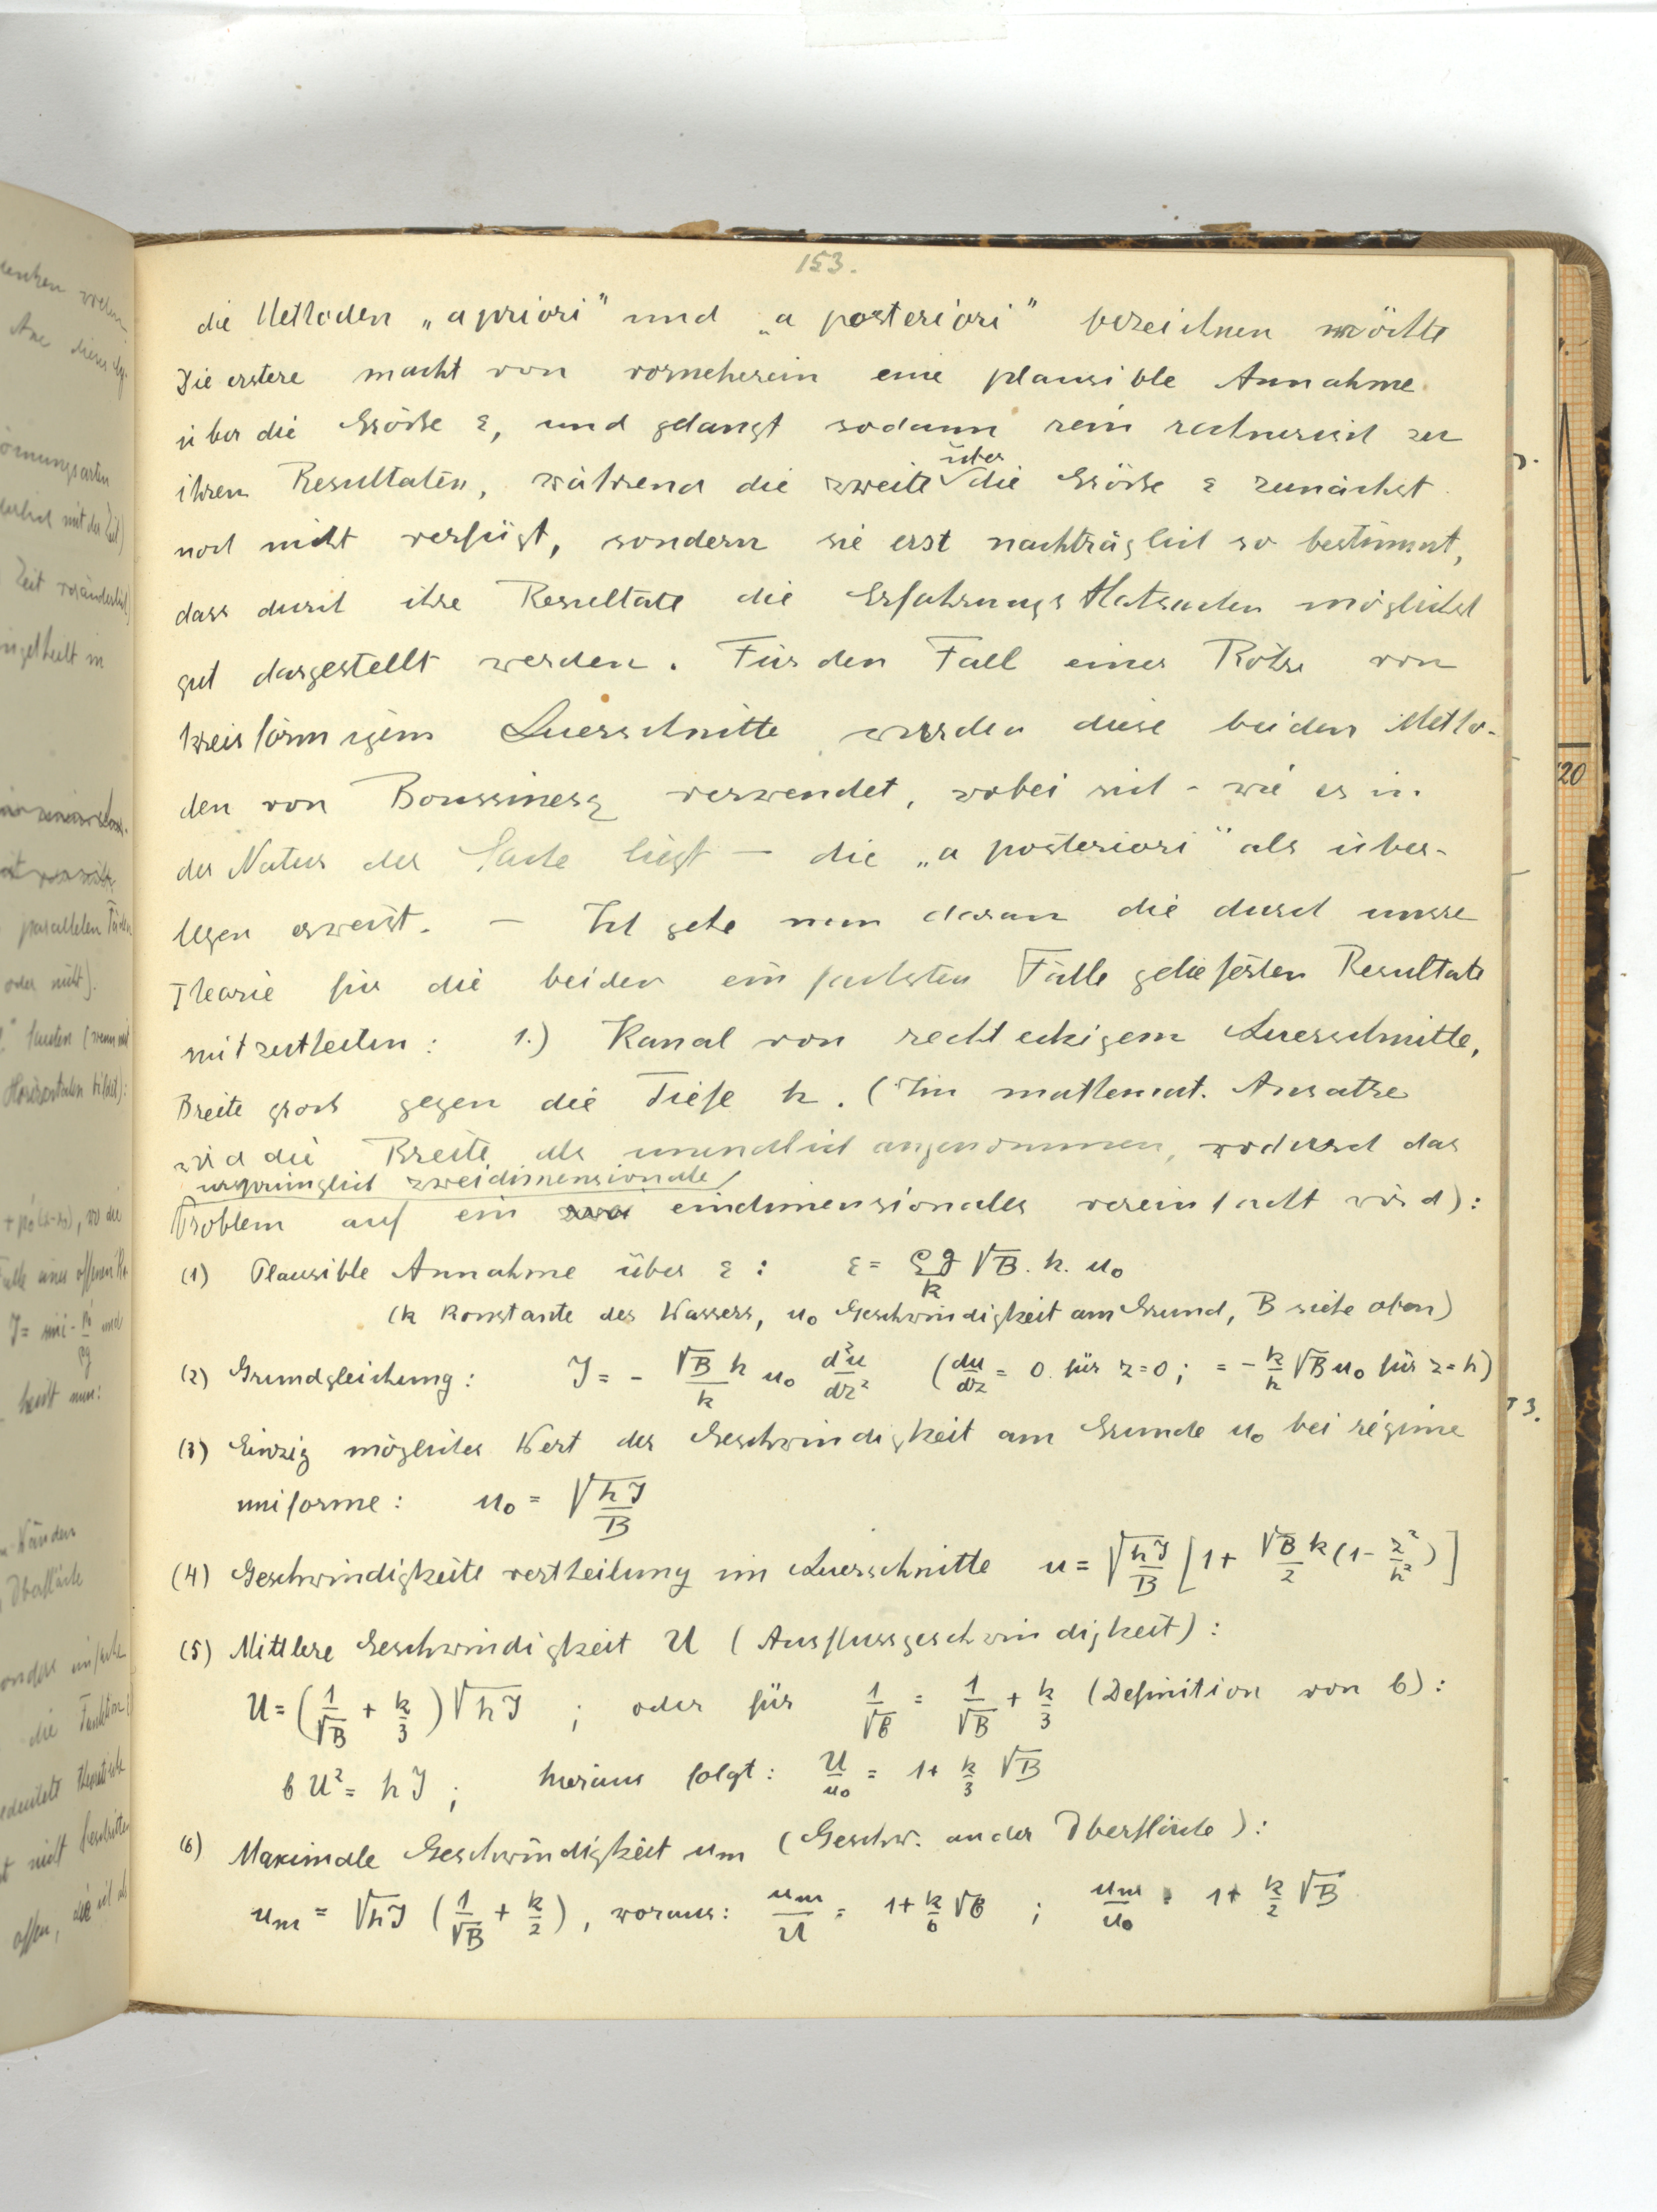 153.
die Methoden „a priori" und „a posteriori" bezeichnen möchte
Die erstere macht von vorneherein eine plausible Annahme
über die Größe ε, und gelangt sodann rein rechnerisch zu
über
ihren Resultaten, während die zweite die Größe ε zunächst
noch nicht verfügt, sondern sie erst nachträglich so bestimmt,
dass durch ihre Resultate die Erfahrungsthatsachen möglichst
gut dargestellt werden. Für den Fall einer Röhre von
kreisförmigem Querschnitte wurden diese beiden Metho-
den von Boussinesq verwendet, wobei sich - wie es in
der Natur der Sache liegt - die „a posteriori" als über-
legen erweist. - Ich gehe nun daran die durch unsre
Theorie für die beiden einfachsten Fälle gelieferten Resultate
mitzutheilen: 1.) Kanal von rechteckigem Querschnitte,
Breite gross gegen die Tiefe h. (Im mathemat. Ansatze
wird die Breite als unendlich angenommen, wodurch das
ursprünglich zweidimensionale
Problem auf ein eindimensionales vereinfacht wird):
(1) Plausible Annahme über ε: ε = ρg/k √B. h. u₀
(k Konstante des Wassers, u₀ Geschwindigkeit am Grund, B siehe oben)
(2) Grundgleichung: J = - √B h/k u₀ d²u/dz² (du/dz = 0 für z=0; = - k/h √B u₀ für z=h)
(3) Einzig möglicher Wert der Geschwindigkeit am Grunde u₀ bei régime
uniforme: u₀ = √hJ/B
(4) Geschwindigkeitsvertheilung im Querschnitte u = √hJ/B [1 + √B k/2 (1 - z²/h²)]
(5) Mittlere Geschwindigkeit U (Ausflussgeschwindigkeit):
U = (1/√B + k/3) √hJ ; oder für 1/√b = 1/√B + k/3 (Definition von b):
b U² = hJ ; hieraus folgt: U/u₀ = 1 + k/3 √B
(6) Maximale Geschwindigkeit um (Geschw. an der Oberfläche):
um = √hJ (1/√B + k/2), woraus: um/U = 1 + k/6 √b ; um/u₀ = 1 + k/2 √B
20